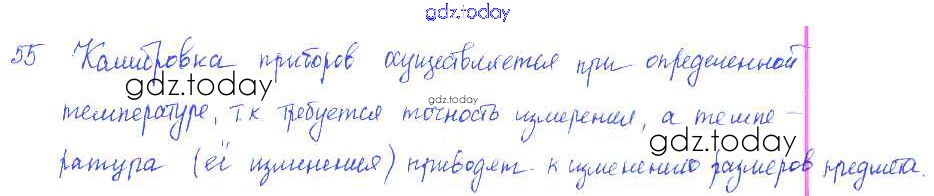 gdz.today
55 Калибровка приборов осуществляется при определенной
gdz.today
gdz.today
температуре, т.к требуется точность измерения, а темпе-
gdz.today
ратура (её изменения) приводят к изменению размеров предмета.